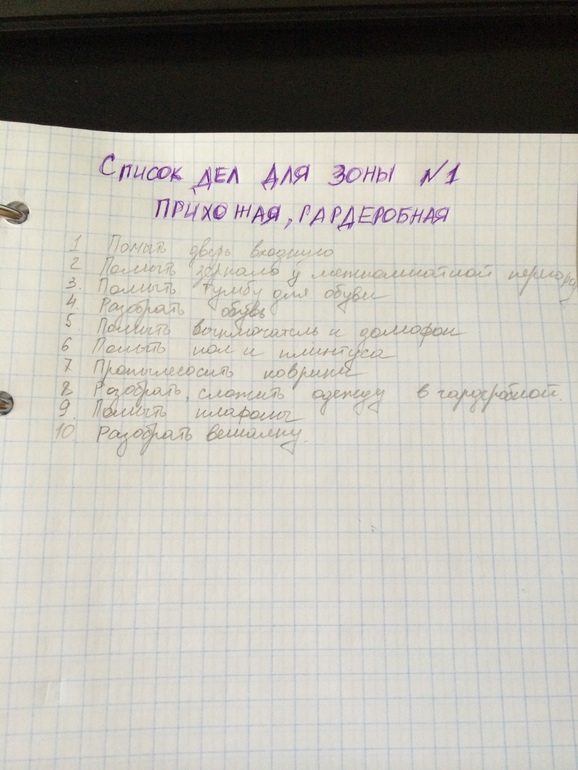 Список дел для зоны №1
Прихожая, гардеробная
1 Помыть дверь входную
2 Помыть зеркало у межкомнатной
3. Помыть тумбу для обуви
4. Разобрать обувь
5 Помыть выключатель и домофон
6 Помыть пол и плинтуса
7 Пропылесосить коврики
8 Разобрать, сложить одежду в гардеробной.
9 Помыть плафоны
10 Разобрать вешалку.